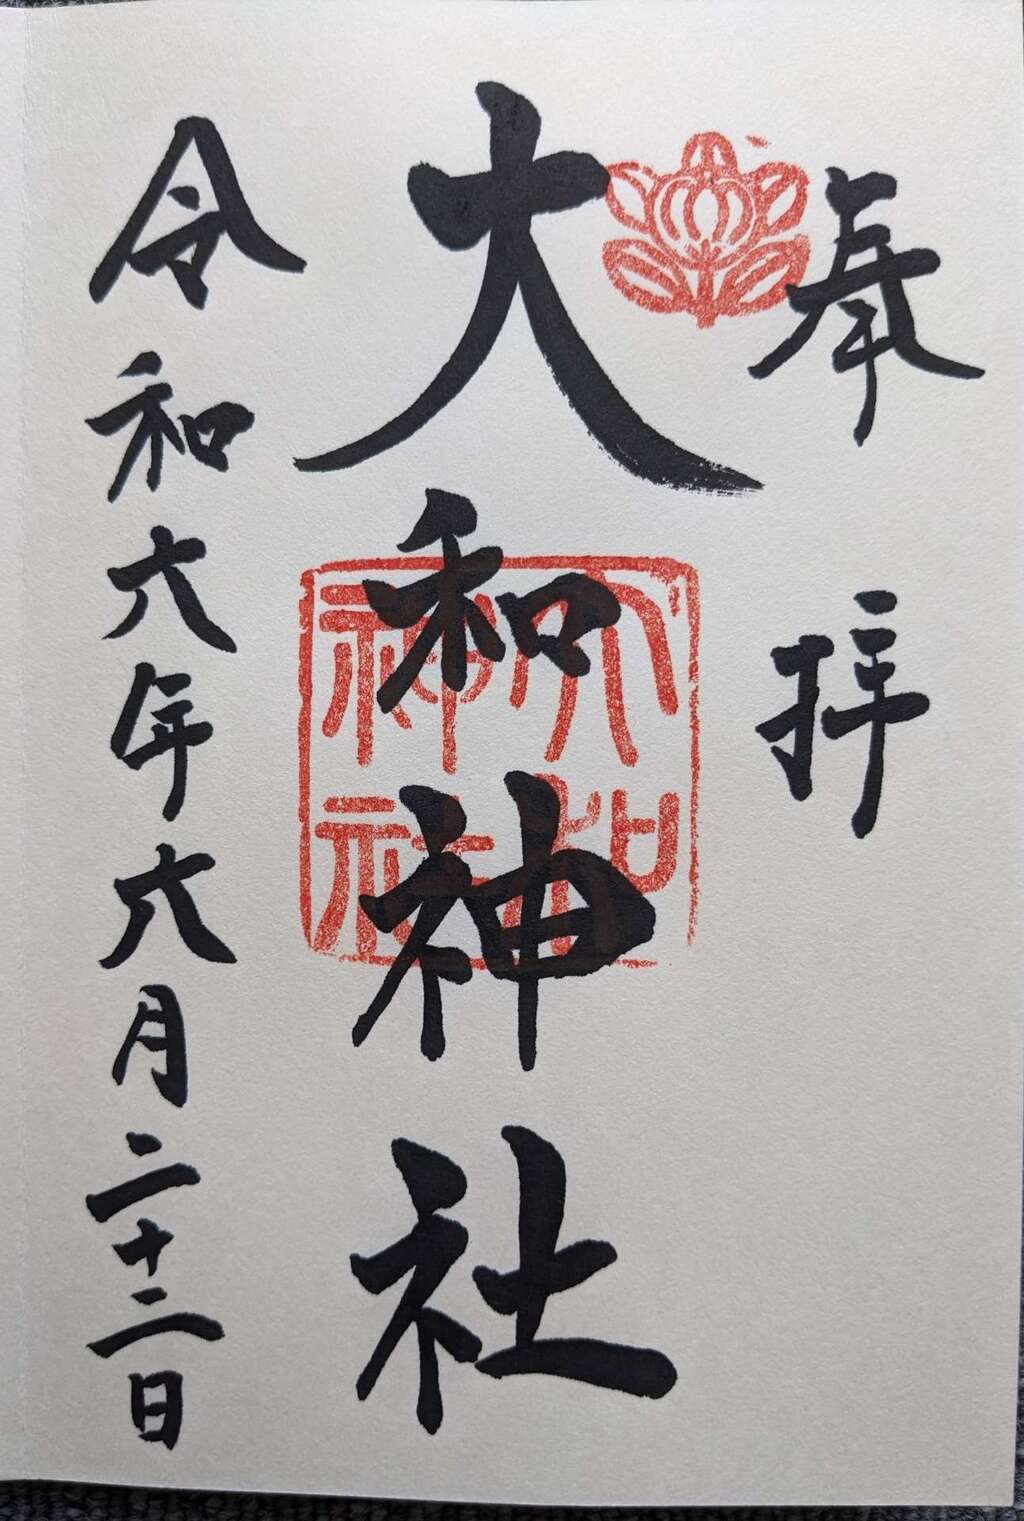 奉拝
大和神社
大和
神社
令和六年六月二十二日